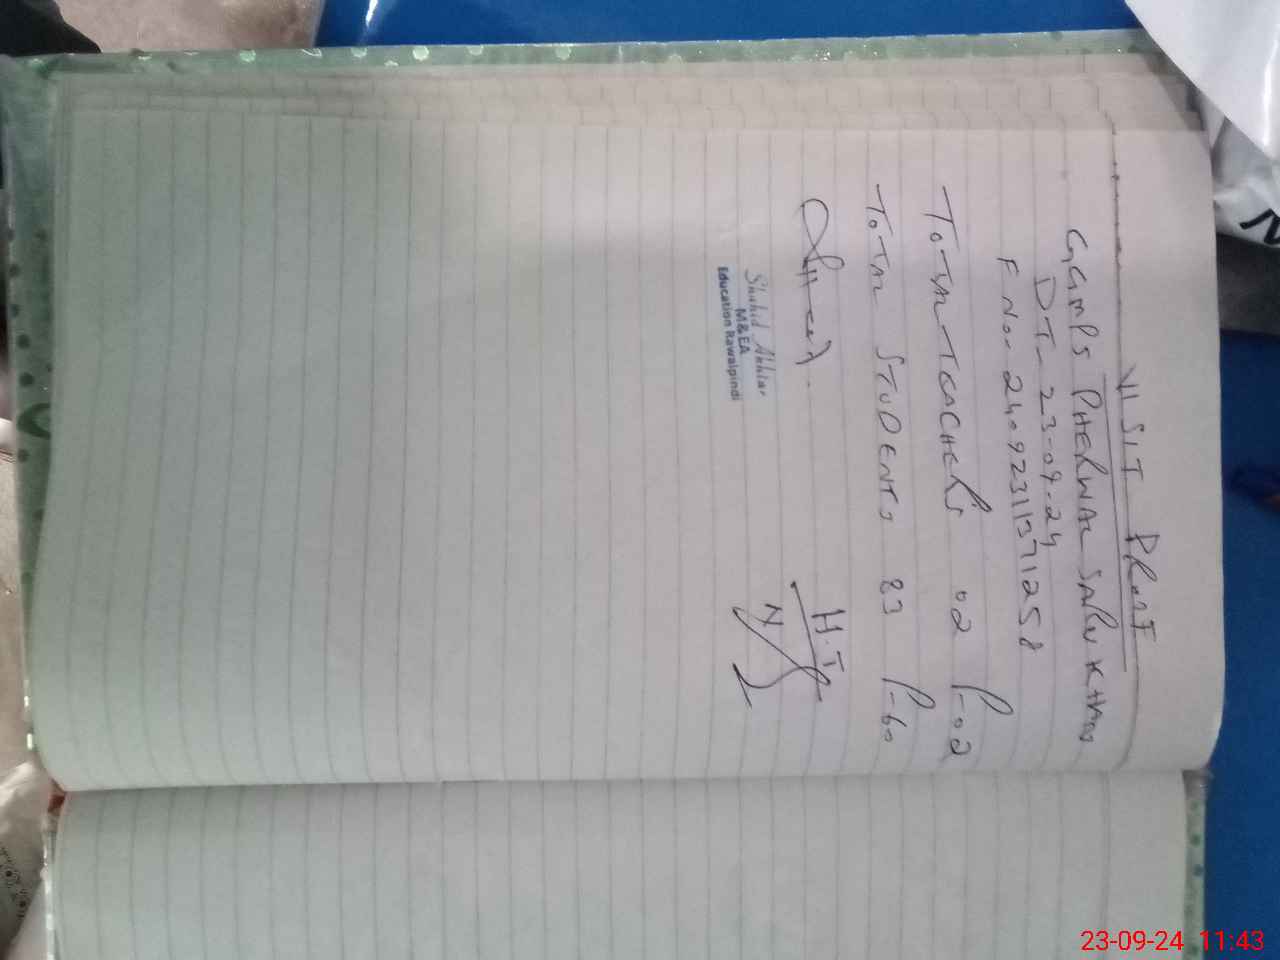 VISIT PROOF
GGMPS PHERWAL SARU KHAN
DT- 23-09-24
F No. 24092311371258
TOTAL TEACHERS 02 P-02
TOTAL STUDENTS 83 P-60
H.T
Shahid Akhtar
M&EA
Education Rawalpindi
23-09-24 11:43